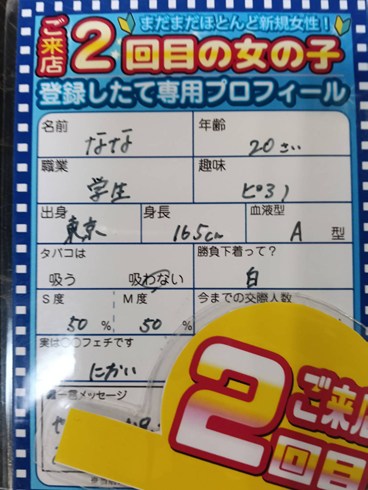 まだまだほとんど新規女性!
ご来店
2回目の女の子
登録したて専用プロフィール
名前 なな 年齢 20さい
職業 学生 趣味 ピアノ
出身 東京 身長 165cm 血液型 A 型
タバコは 勝負下着って?
吸う 吸わない 白
S度 M度 今までの交際人数
50 % 50 %
実は〇〇フェチです
におい
メッセージ
2
ご来店
回目